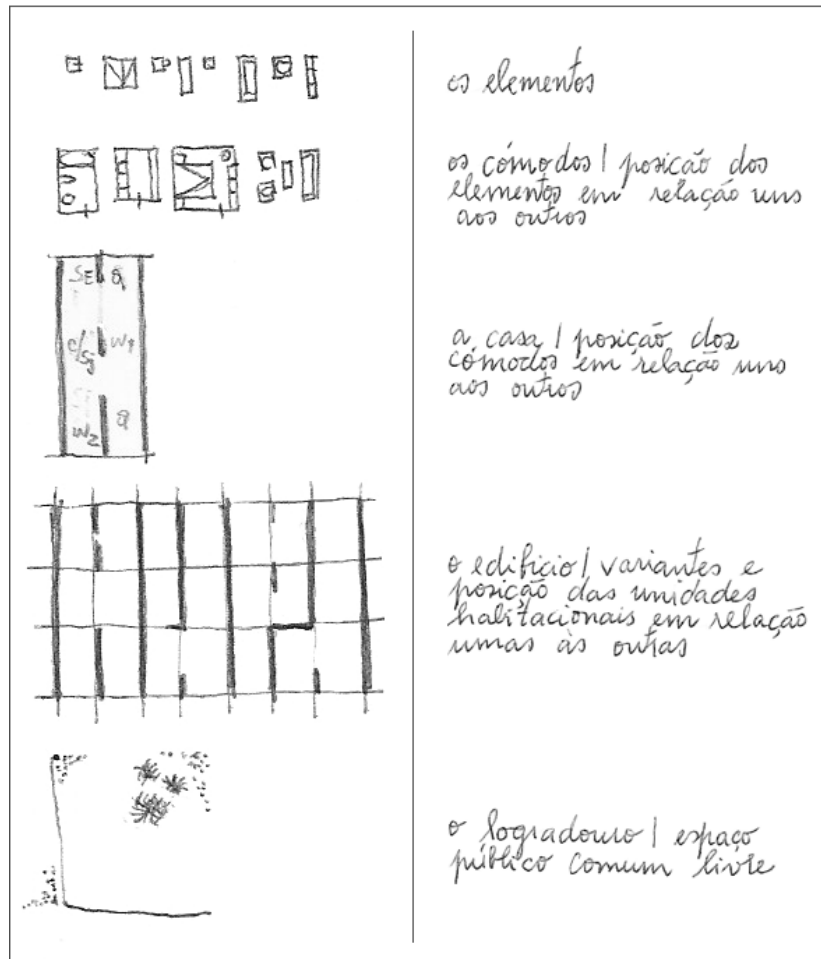 os elementos
os cómodos | posição dos
elementos em relação uns
aos outros
SE
W1
W2
a casa | posição dos
cómodos em relação uns
aos outros
o edificio | variantes e
posição das unidades
habitacionais em relação
umas às outras
o logradouro | espaço
público comum livre